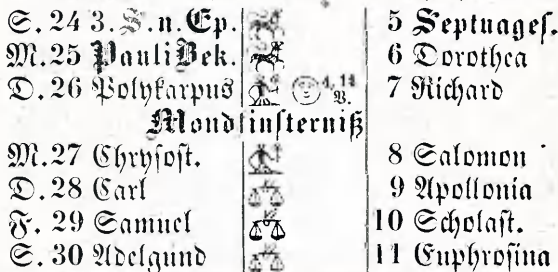 S. 24 3. S. n. Ep. 5 Septuages.
M. 25 Pauli Bek. 6 Dorothea
D. 26 Polykarpus 4, 14 V. 7 Richard
Mondfinsterniß
M. 27 Chrysost. 8 Salomon
D. 28 Carl 9 Apollonia
F. 29 Samuel 10 Scholast.
S. 30 Adelgund 11 Euphrosina